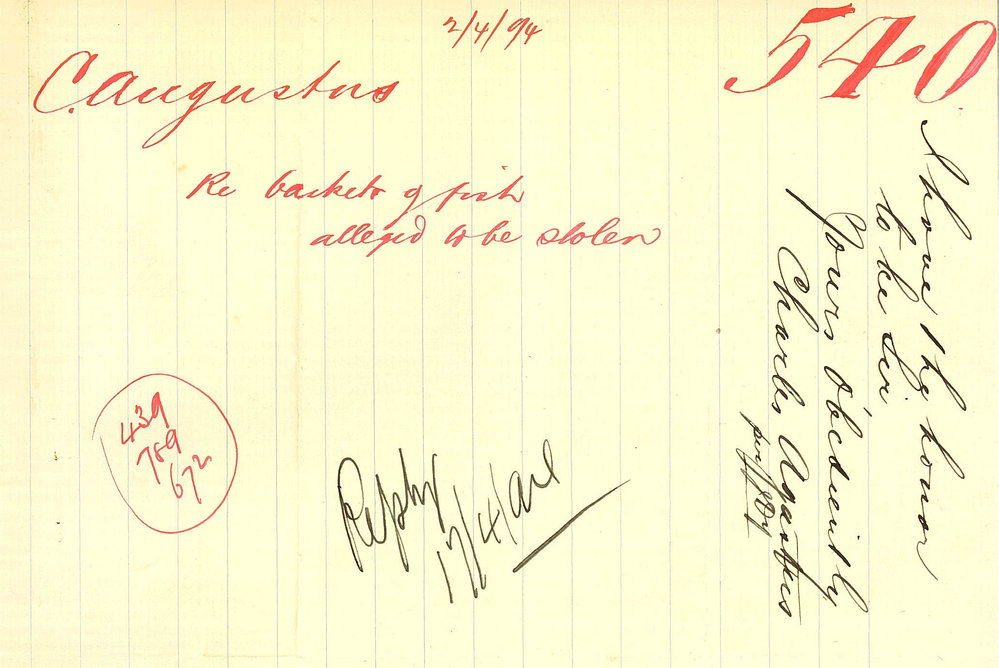 2/4/94
540
C. Augustus
Re baskets of fish
alleged to be stolen
439
789
672
Reply
17/4/94
I have the honor
to be Sir
Yours Obediently
Charles Agastus
per